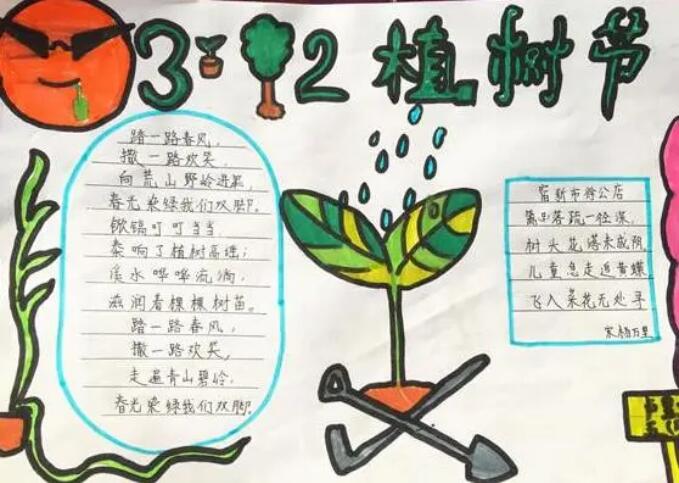 3 2 植树节
踏一路春风,
撒一路欢笑,
向荒山野岭进军,
春光染绿我们双脚。
锨镐叮叮当当,
奏响了植树高谣;
溪水哗哗流淌,
滋润着棵棵树苗。
踏一路春风,
撒一路欢笑,
走遍青山碧岭,
春光染绿我们双脚.
宿新市徐公店
落疏一径深
树 花落未成阴
儿童急走追黄蝶
飞入菜花无处寻
宋杨万里
五(